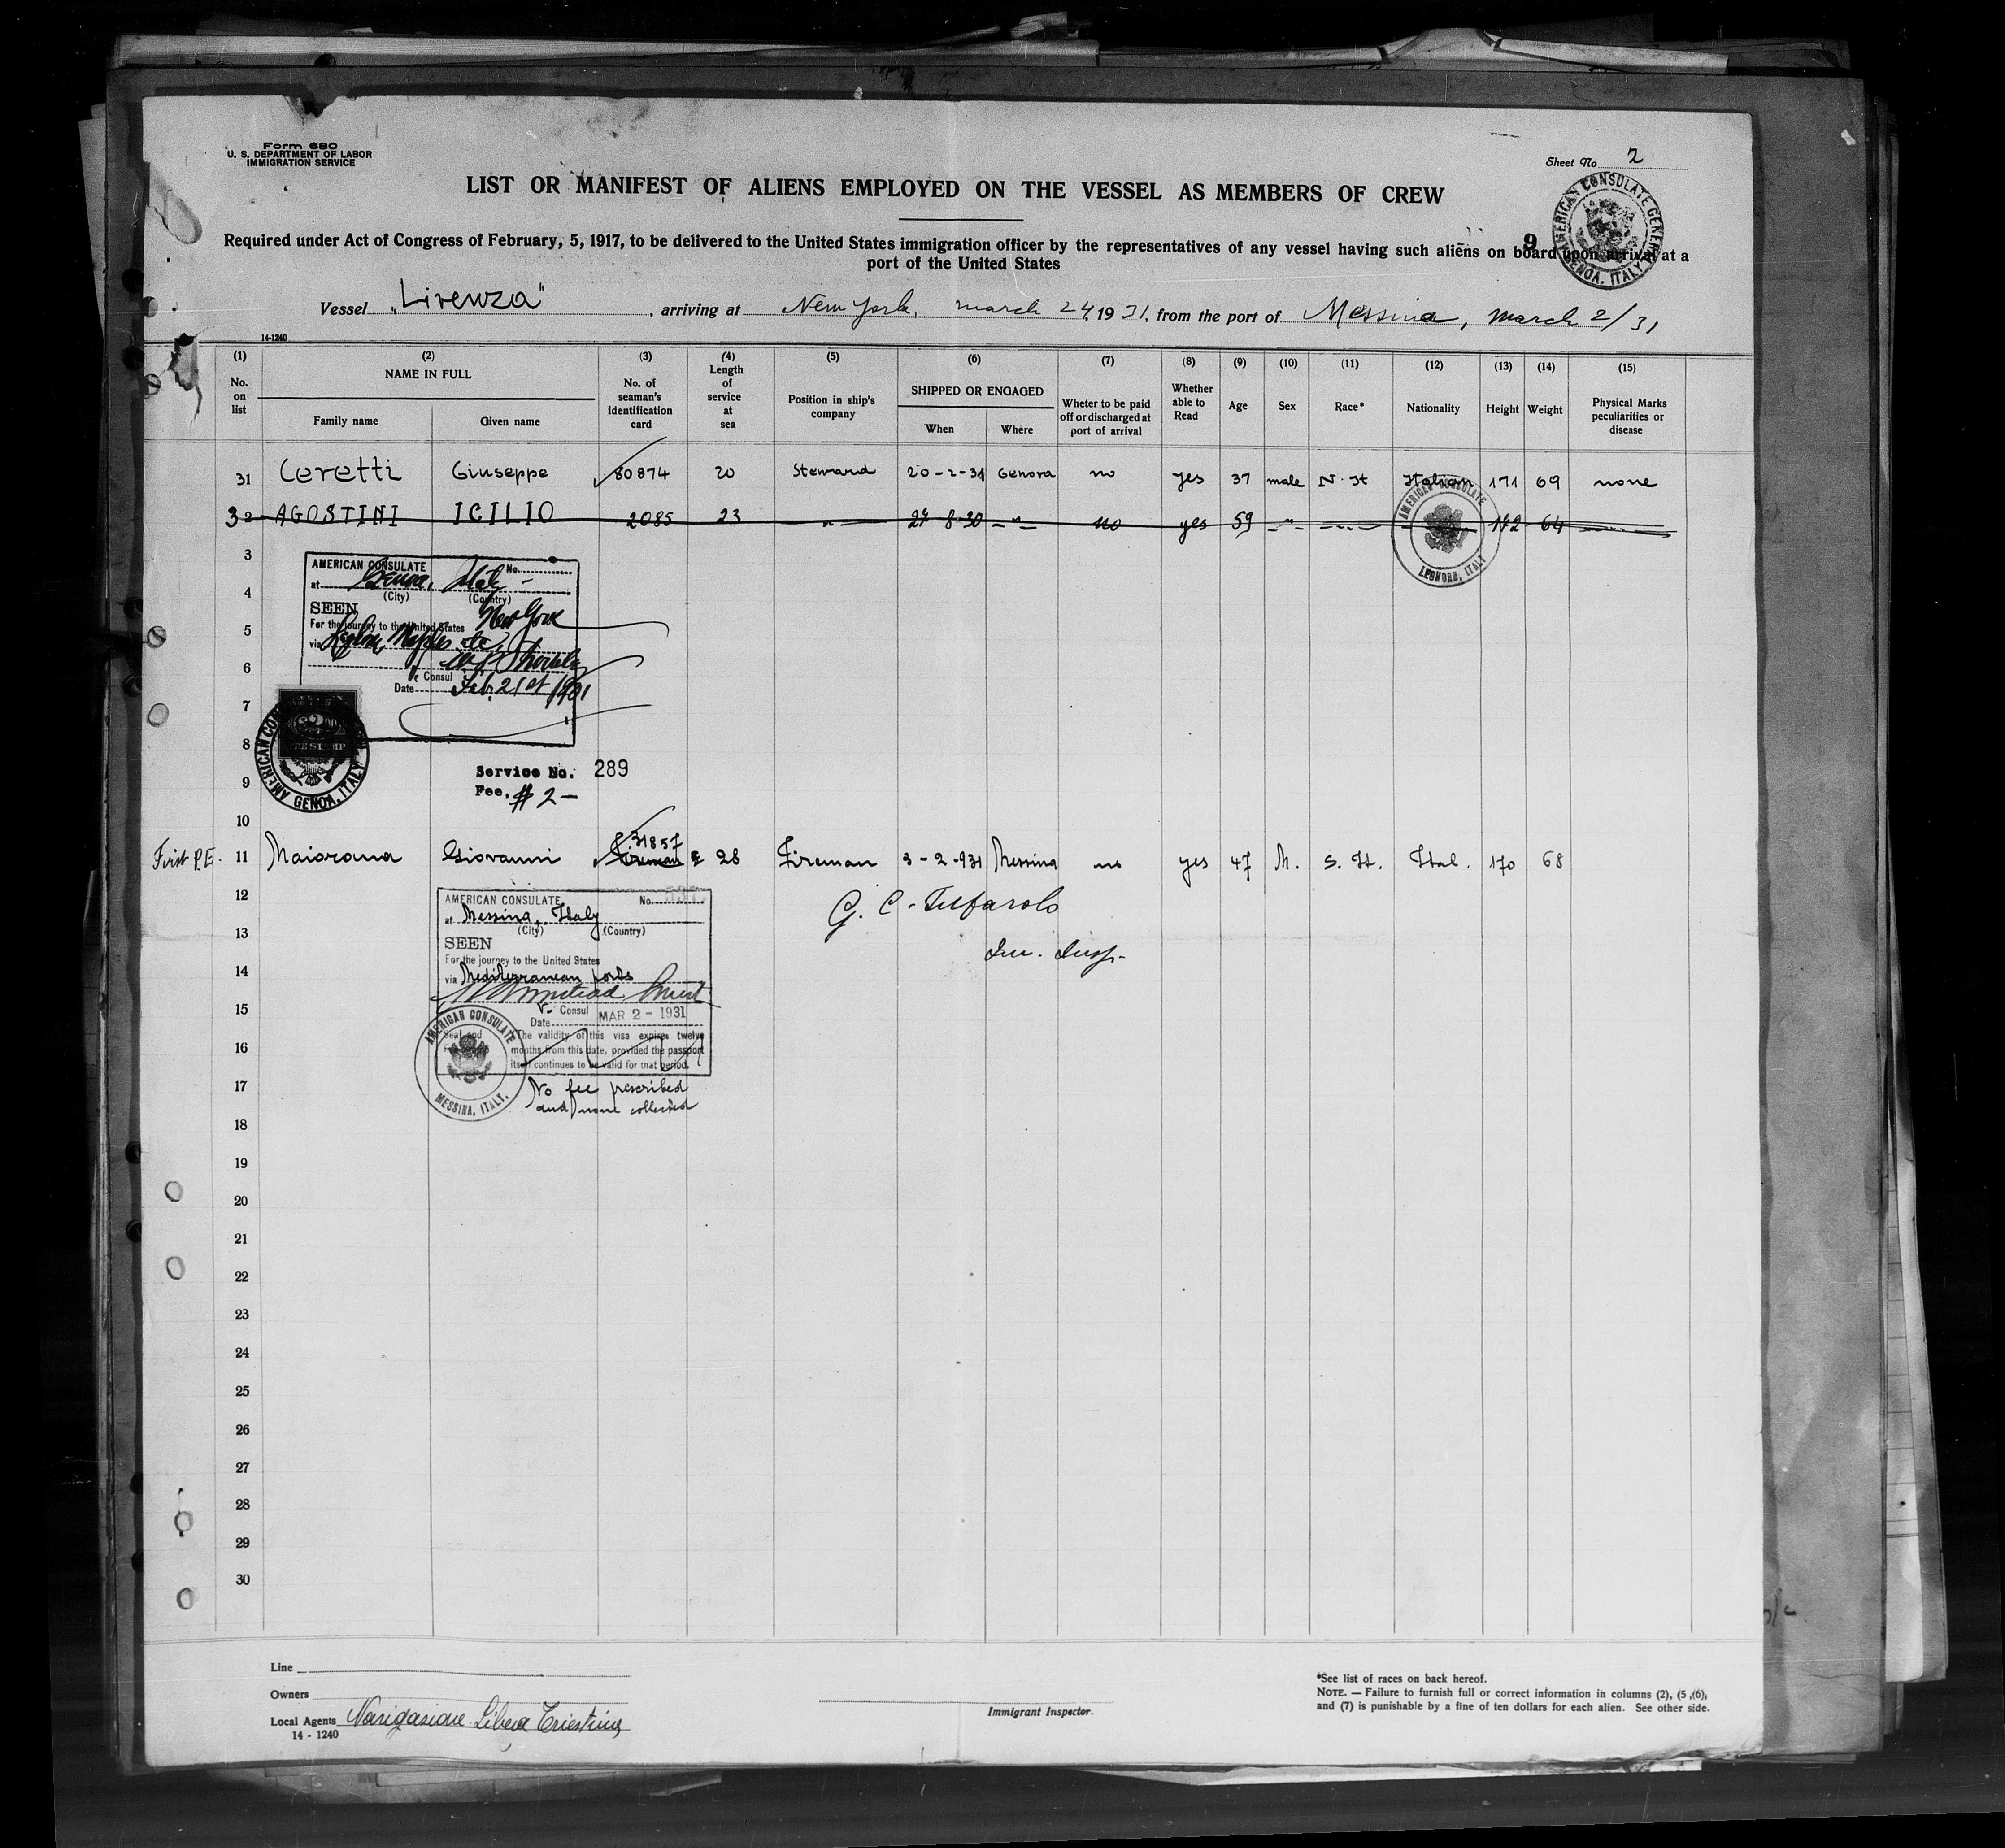 Form 680
U. S. DEPARTMENT OF LABOR
IMMIGRATION SERVICE
Sheet No 2
LIST OR MANIFEST OF ALIENS EMPLOYED ON THE VESSEL AS MEMBERS OF CREW
AMERICAN CONSULATE GENERAL GENOA, ITALY
9
Required under Act of Congress of February, 5, 1917, to be delivered to the United States immigration officer by the representatives of any vessel having such aliens on board upon arrival at a
port of the United States
Vessel "Livenza", arriving at New York, march 24, 1931, from the port of Messina, march 2/31
14-1240
(1) (2) (3) (4) (5) (6) (7) (8) (9) (10) (11) (12) (13) (14) (15)
No. on list
NAME IN FULL
Family name Given name
No. of seaman's identification card
Length of service at sea
Position in ship's company
SHIPPED OR ENGAGED
When Where
Wheter to be paid off or discharged at port of arrival
Whether able to Read
Age Sex Race* Nationality Height Weight
Physical Marks peculiarities or disease
31 Ceretti Giuseppe 80874 20 Steward 20-2-31 Genova no yes 37 male N. It Italian 171 69 none
32 AGOSTINI ICILIO 2085 23 " 27 8-30 " no yes 59 " 172 64
AMERICAN CONSULATE LEGHORN, ITALY
3
AMERICAN CONSULATE No.
at Genoa, Italy
4
(City) (Country)
SEEN New York
5
For the journey to the United States
via Leghorn, Naples etc
6
Consul
Date Feb. 21st 1931
7
8
AMERICAN CONSULATE GENERAL GENOA, ITALY
FEE STAMP
Service No. 289
9
Fee. $ 2-
10
First P.E. 11 Maiorana Giovanni 31857 Fireman 28 Fireman 3-2-931 Messina no yes 47 M. S. It. Ital. 170 68
12
AMERICAN CONSULATE No.
G. C. Tufarolo
at Messina, Italy
13
(City) (Country)
SEEN
Im. Insp.
For the journey to the United States
14
via Mediterranean ports
15
V- Consul
Date MAR 2 - 1931
The validity of this visa expires twelve
16
months from this date, provided the passport
itself continues to be valid for that period.
AMERICAN CONSULATE MESSINA, ITALY.
17
No fee prescribed
and none collected
18
19
20
21
22
23
24
25
26
27
28
29
30
Line
Owners
Local Agents Navigazione Libera Triestina
14 - 1240
Immigrant Inspector.
*See list of races on back hereof.
NOTE. — Failure to furnish full or correct information in columns (2), (5 ,(6),
and (7) is punishable by a fine of ten dollars for each alien. See other side.